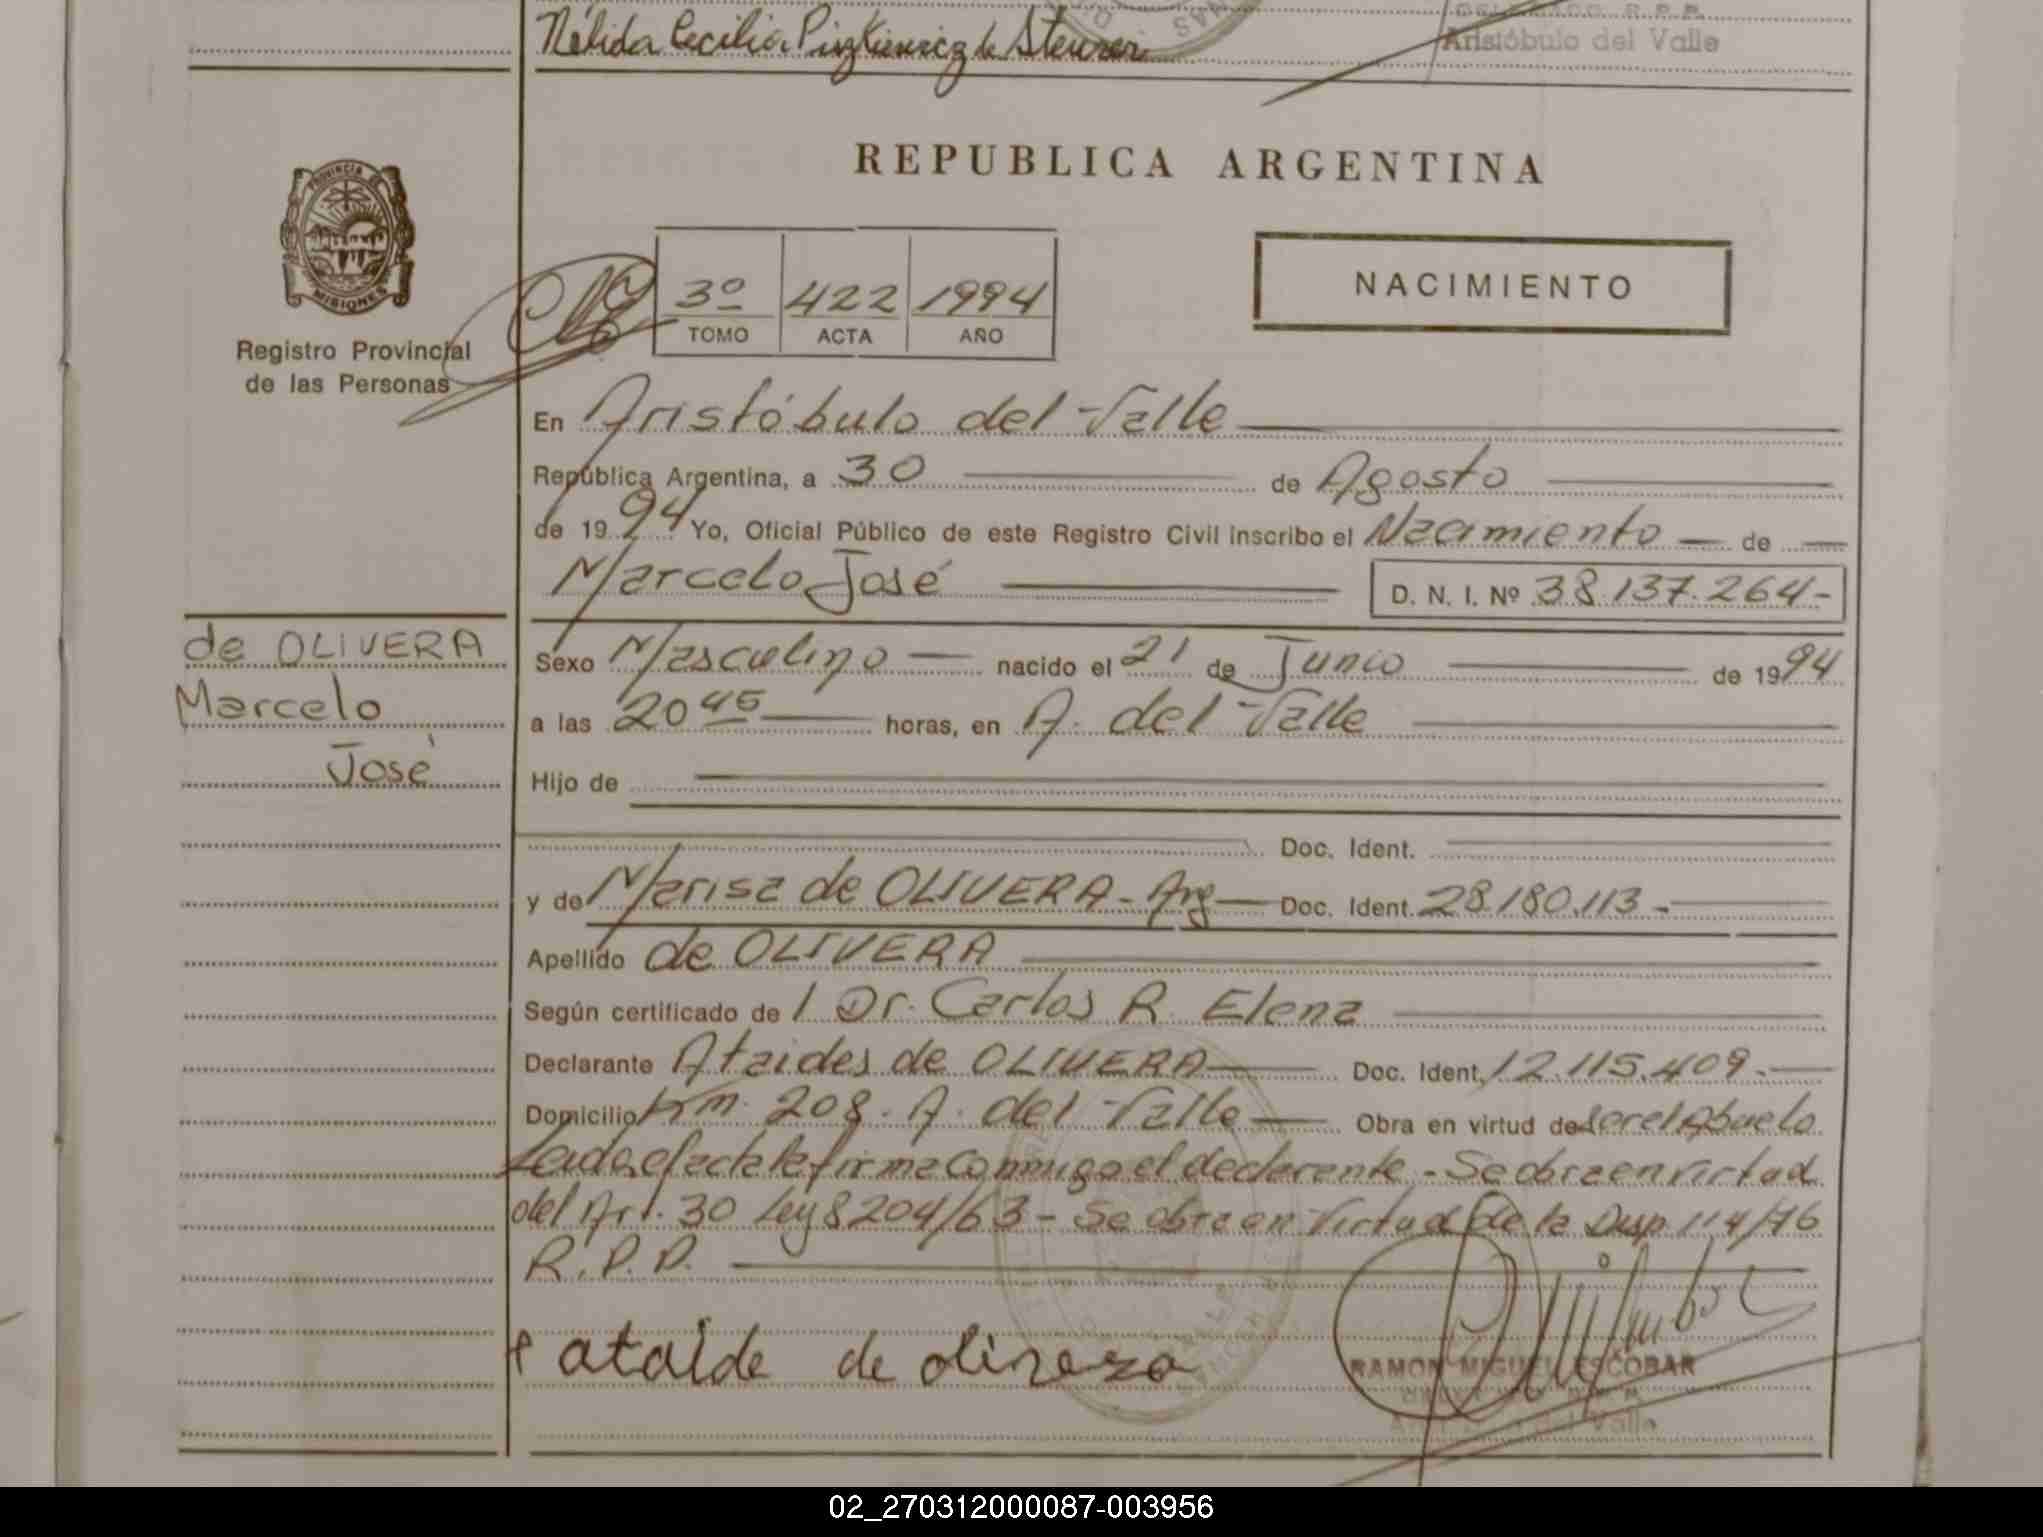 Nélida Cecilia Puzkiewicz de Steurer
DELEGADO R.P.P.
Aristóbulo del Valle
REPUBLICA ARGENTINA
PROVINCIA DE
MISIONES
Registro Provincial
de las Personas
3º 422 1994
TOMO ACTA AÑO
NACIMIENTO
En Aristóbulo del Valle
República Argentina, a 30 de Agosto
de 1994 Yo, Oficial Público de este Registro Civil inscribo el Nacimiento de
Marcelo José D. N. I. Nº 38.137.264-
de OLIVERA
Marcelo
José
Sexo Masculino nacido el 21 de Junio de 1994
a las 20 45 horas, en A. del Valle
Hijo de
Doc. Ident.
y de Marisa de OLIVERA - Arg Doc. Ident. 28.180.113-
Apellido de OLIVERA
Según certificado de l Dr. Carlos R. Elena
Declarante Ataides de OLIVERA Doc. Ident. 12.115.409.-
Domicilio Km. 208. A. del Valle Obra en virtud de ser el Abuelo
Leida el acta la firma conmigo el declarante - Se obra en virtud
del Art. 30 Ley 8204/63 - Se obra en Virtud de la Disp 114/76
R.P.P.
atalde de olineza
RAMON MIGUEL ESCOBAR
del Valle
02_270312000087-003956